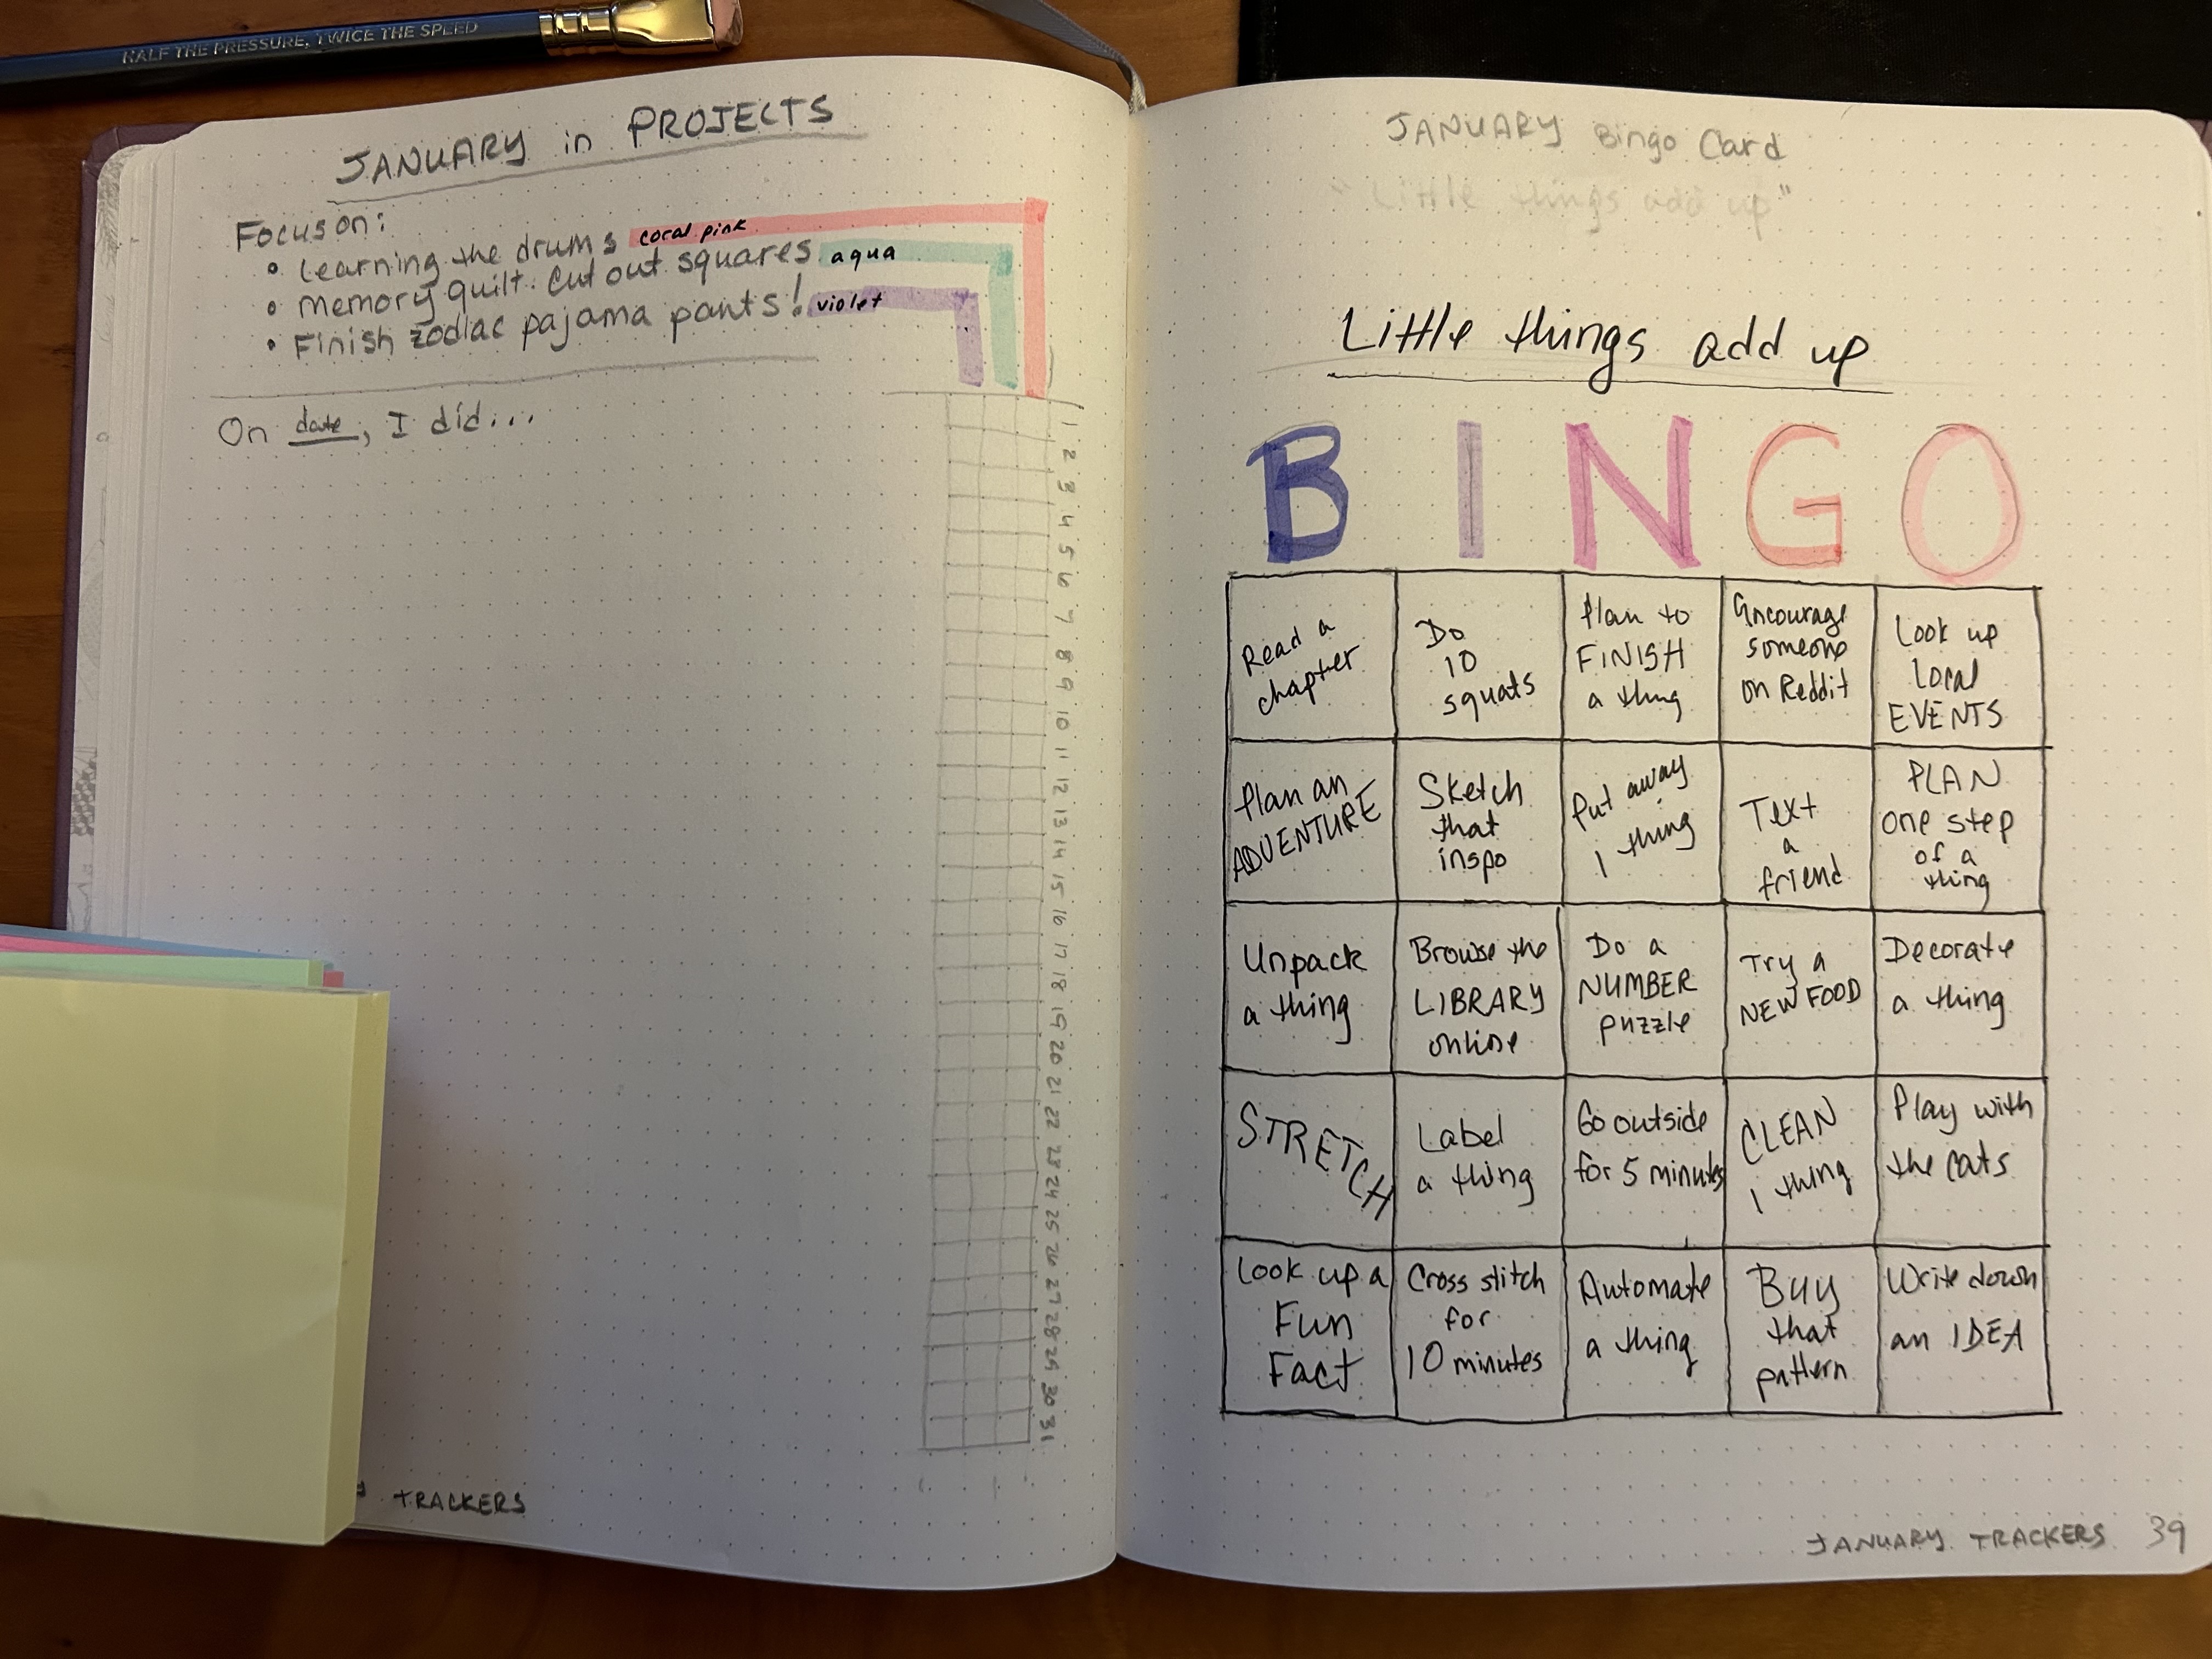 HALF THE PRESSURE, TWICE THE SPEED
JANUARY in PROJECTS
Focus on:
• Learning the drums coral pink
• Memory quilt. Cut out squares aqua
• Finish zodiac pajama pants! violet
On date, I did...
1
2
3
4
5
6
7
8
9
10
11
12
13
14
15
16
17
18
19
20
21
22
23
24
25
26
27
28
29
30
31
TRACKERS
JANUARY Bingo Card
"Little things add up"
Little things add up
BINGO
Read a
chapter
Do
10
squats
Plan to
FINISH
a thing
Encourage
someone
on Reddit
Look up
Local
EVENTS
Plan an
ADVENTURE
Sketch
that
inspo
Put away
1 thing
Text
a
friend
PLAN
one step
of a
thing
Unpack
a thing
Browse the
LIBRARY
online
Do a
NUMBER
puzzle
Try a
NEW FOOD
Decorate
a thing
STRETCH
Label
a thing
Go outside
for 5 minutes
CLEAN
1 thing
Play with
the cats
Look up a
Fun
Fact
Cross stitch
for
10 minutes
Automate
a thing
Buy
that
pattern
Write down
an IDEA
JANUARY TRACKERS 39